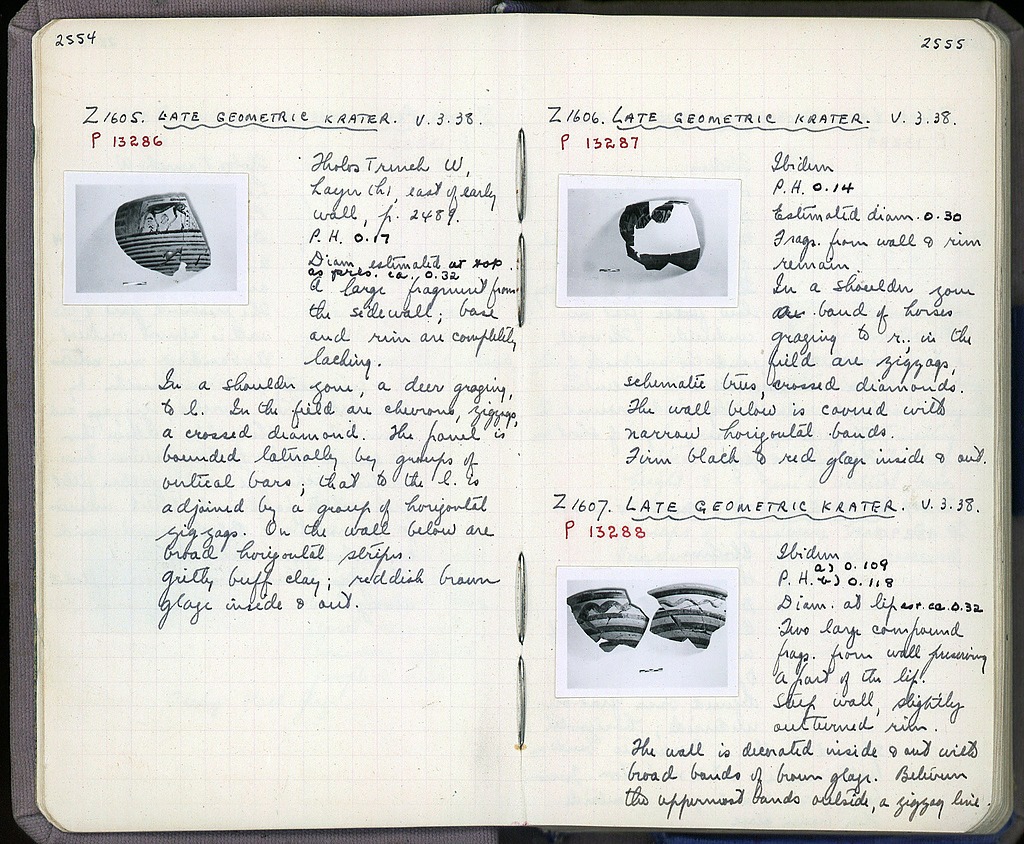 2554
Z 1605. LATE GEOMETRIC KRATER. V.3.38.
P 13286
Tholos Trench W,
Layer (h), east of early
wall, p. 2489.
P.H. 0.17
Diam. estimated at top
as pres. ca. 0.32
A large fragment from
the sidewall; base
and rim are completely
lacking.
In a shoulder zone, a deer grazing,
to l. In the field are chevrons, zigzags,
a crossed diamond. The panel is
bounded laterally by groups of
vertical bars; that to the l. is
adjoined by a group of horizontal
zig-zags. On the wall below are
broad horizontal stripes.
Gritty buff clay; reddish brown
glaze inside & out.
2555
Z 1606. LATE GEOMETRIC KRATER. V.3.38.
P 13287
Ibidem
P.H. 0.14
Estimated diam. 0.30
Frags. from wall & rim
remain.
In a shoulder zone
band of horses
grazing to r., in the
field are zigzags,
schematic trees, crossed diamonds.
The wall below is covered with
narrow horizontal bands.
Firm black to red glaze inside & out.
Z 1607. LATE GEOMETRIC KRATER. V.3.38.
P 13288
Ibidem
a) 0.109
P.H. b) 0.118
Diam. at lip est. ca. 0.32
Two large compound
frags. from wall preserving
a part of the lip.
Steep wall, slightly
outturned rim.
The wall is decorated inside & out with
broad bands of brown glaze. Between
the uppermost bands outside, a zigzag line.